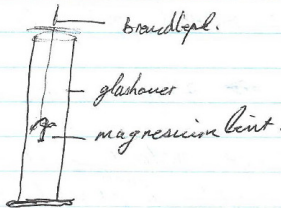 Brandlepel.
glashouer
magnesium lint.